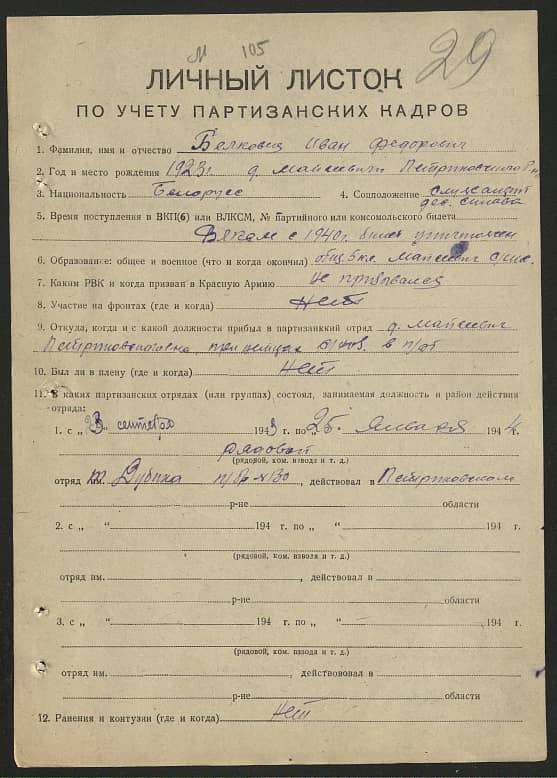 № 105
29
ЛИЧНЫЙ ЛИСТОК
ПО УЧЕТУ ПАРТИЗАНСКИХ КАДРОВ
1. Фамилия, имя и отчество Иван Федорович
2. Год и место рождения 1923 г. д. Петриковского
3. Национальность Белорус 4. Соцположение
5. Время поступления в ВКП(б) или ВЛКСМ, № партийного или комсомольского билета
с 1940 г. билет уничтожен
6. Образование: общее и военное (что и когда окончил) общ. 5 кл.
7. Каким РВК и когда призван в Красную Армию не призывался
8. Участие на фронтах (где и когда) нет
9. Откуда, когда и с какой должности прибыл в партизанкий отряд д.
при немцах в п/от
10. Был ли в плену (где и когда) нет
11. В каких партизанских отрядах (или группах) состоял, занимаемая должность и район действия
отряда:
1. с „ 3 “ сентября 1943 г. по „ 25 “ Января 1944 г.
рядовой
(рядовой, ком. взвода и т. д.)
отряд им. п/бр , действовал в Петриковском
р-не области
2. с „ “ 194 г. по „ “ 194 г.
(рядовой, ком. взвола и т. д.)
отряд им. , действовал в
р-не области
3. с „ “ 194 г. по „ “ 194 г.
(рядовой, ком. взвода и т. д.)
отряд им. , действовал в
р-не области
12. Ранения и контузии (где и когда) нет